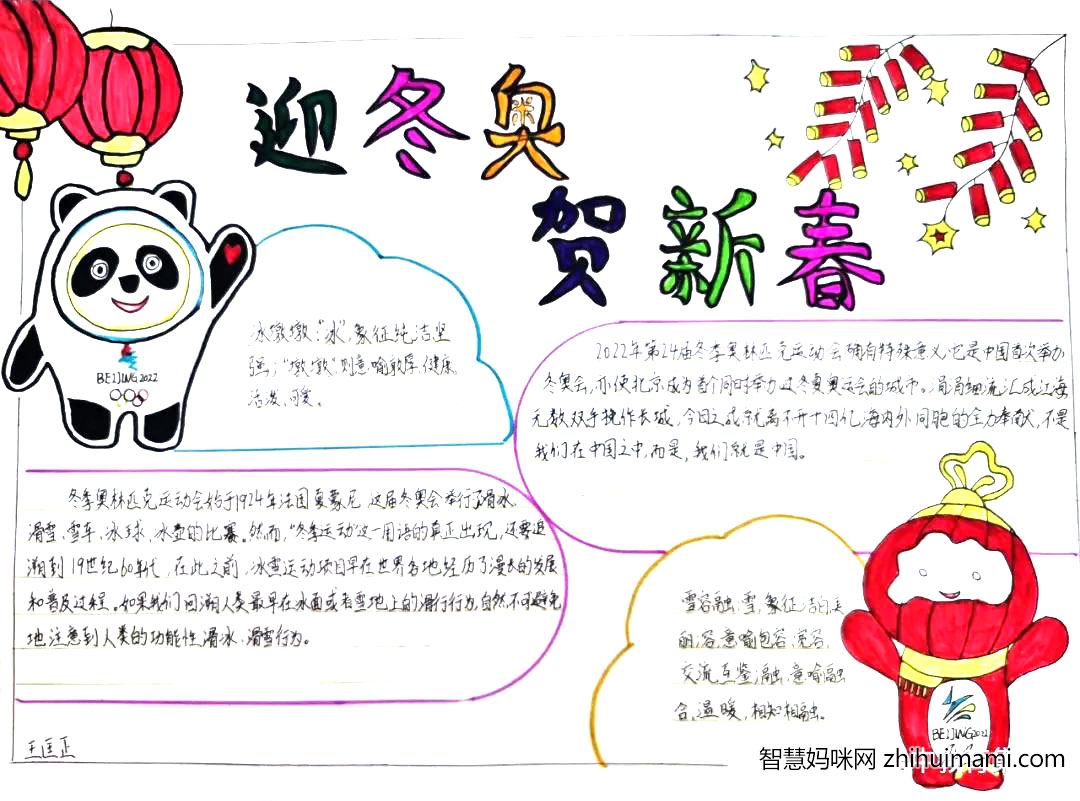 迎冬奥
贺新春
BEIJING 2022
冰墩墩:“冰”,象征纯洁坚
强;“墩墩”则意喻敦厚,健康,
活泼、可爱。
2022年第24届冬季奥林匹克运动会确有特殊意义,它是中国首次举办
冬奥会,亦使北京成为首个同时举办过冬夏奥运会的城市。涓涓细流汇成江海,
无数双手挽作长城,今日之成就离不开十四亿海内外同胞的全力奉献,不是
我们在中国之中,而是,我们就是中国。
冬季奥林匹克运动会始于1924年法国夏蒙尼,这届冬奥会举行了滑冰、
滑雪、雪车、冰球,冰壶的比赛。然而,“冬季运动”这一用语的真正出现,还要追
溯到19世纪60年代,在此之前,冰雪运动项目早在世界各地经历了漫长的发展
和普及过程。如果我们回溯人类最早在冰面或者雪地上的滑行行为,自然不可避免
地注意到人类的功能性滑冰、滑雪行为。
雪容融:雪,象征洁白美
丽,容,意喻包容,宽容,
交流互鉴;融,意喻融
合,温暖,相知相融。
BEIJING 2022
王匡正
智慧妈咪网 zhihuimami.com